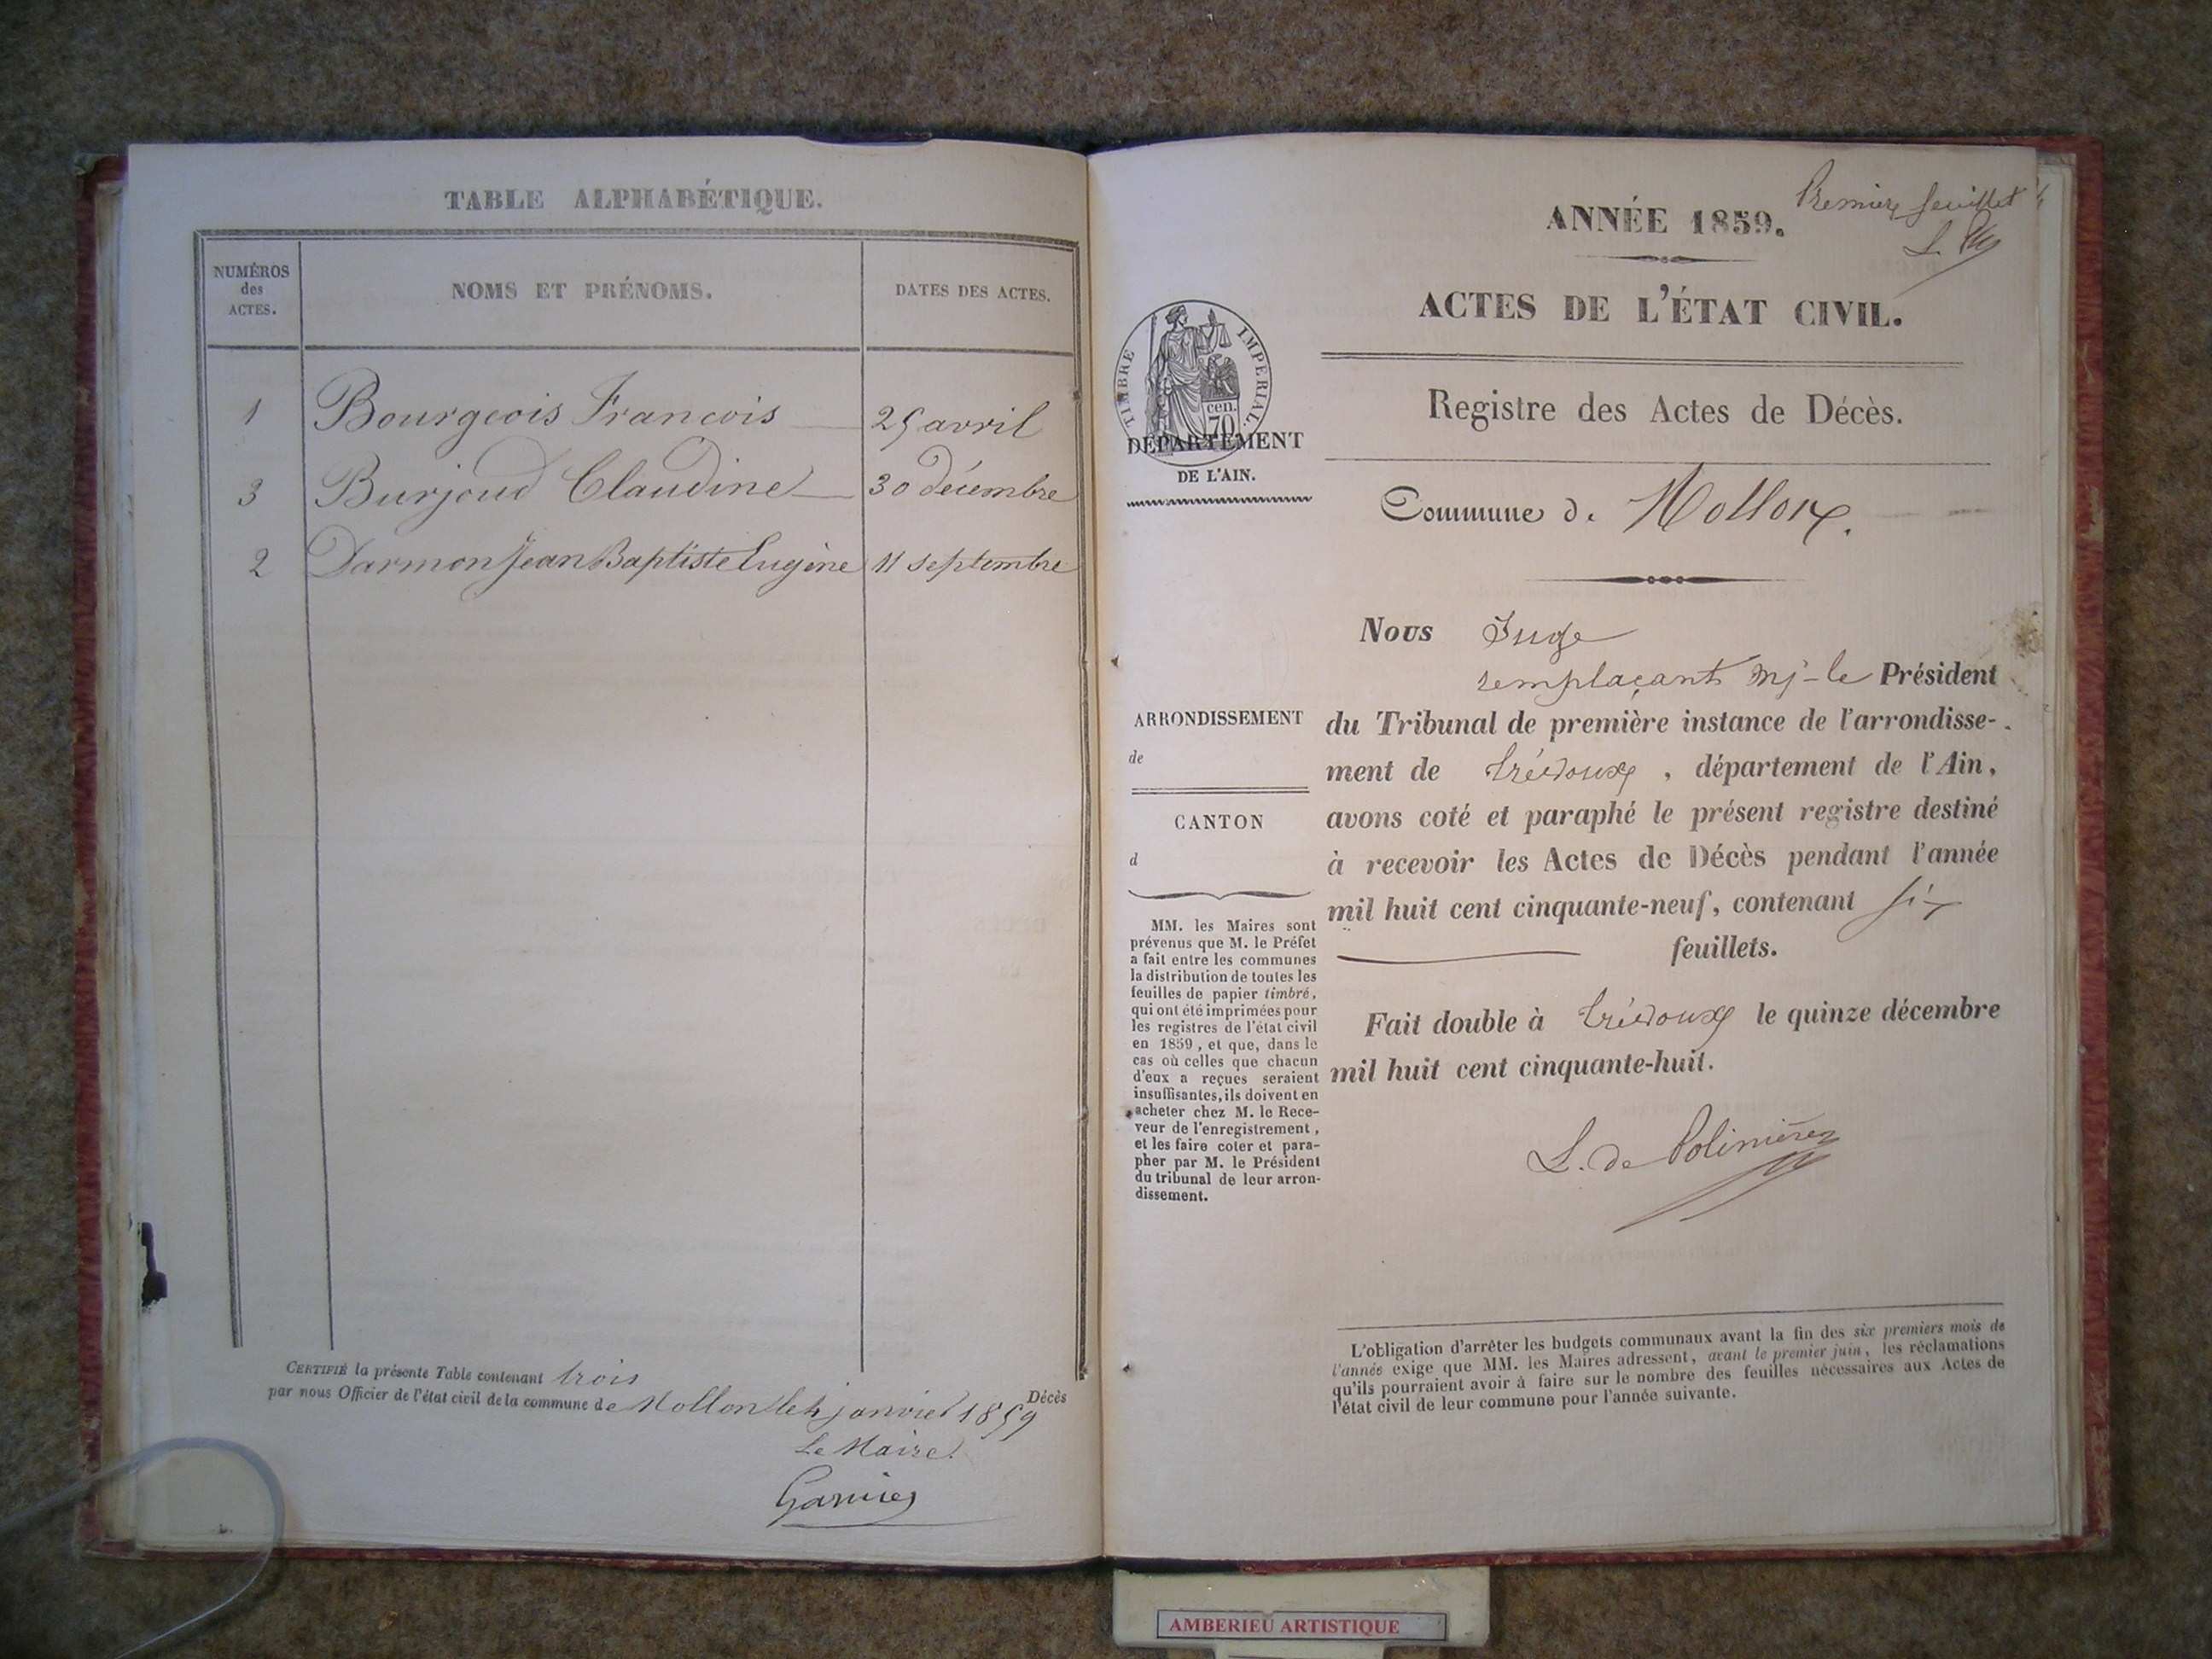 TABLE ALPHABÉTIQUE.
NUMÉROS
des
ACTES.
NOMS ET PRÉNOMS.
DATES DES ACTES.
1 Bourgeois Francois 25 avril
3 Burjoud Claudine 30 décembre
2 Darmon Jean Baptiste Eugène 11 septembre
CERTIFIÉ la présente Table contenant trois
Décès
par nous Officier de l'état civil de la commune de Mollon le 4 janvier 1859
Le Maire
Garnier
Premier feuillet
ANNÉE 1859.
ACTES DE L'ÉTAT CIVIL.
TIMBRE IMPERIAL.
cen.
70
DÉPARTEMENT
DE L'AIN.
Registre des Actes de Décès.
Commune de Mollon.
Nous Juge
remplaçant Mr le Président
du Tribunal de première instance de l'arrondisse-
ment de trévoux, département de l'Ain,
avons coté et paraphé le présent registre destiné
à recevoir les Actes de Décès pendant l'année
mil huit cent cinquante-neuf, contenant six
feuillets.
Fait double à trévoux le quinze décembre
mil huit cent cinquante-huit.
L. de Polinière
ARRONDISSEMENT
de
CANTON
d
MM. les Maires sont
prévenus que M. le Préfet
a fait entre les communes
la distribution de toutes les
feuilles de papier timbré,
qui ont été imprimées pour
les registres de l'état civil
en 1859, et que, dans le
cas où celles que chacun
d'eux a reçues seraient
insuffisantes, ils doivent en
acheter chez M. le Rece-
veur de l'enregistrement,
et les faire coter et para-
pher par M. le Président
du tribunal de leur arron-
dissement.
L'obligation d'arrêter les budgets communaux avant la fin des six premiers mois de
l'année exige que MM. les Maires adressent, avant le premier juin, les réclamations
qu'ils pourraient avoir à faire sur le nombre des feuilles nécessaires aux Actes de
l'état civil de leur commune pour l'année suivante.
AMBERIEU ARTISTIQUE